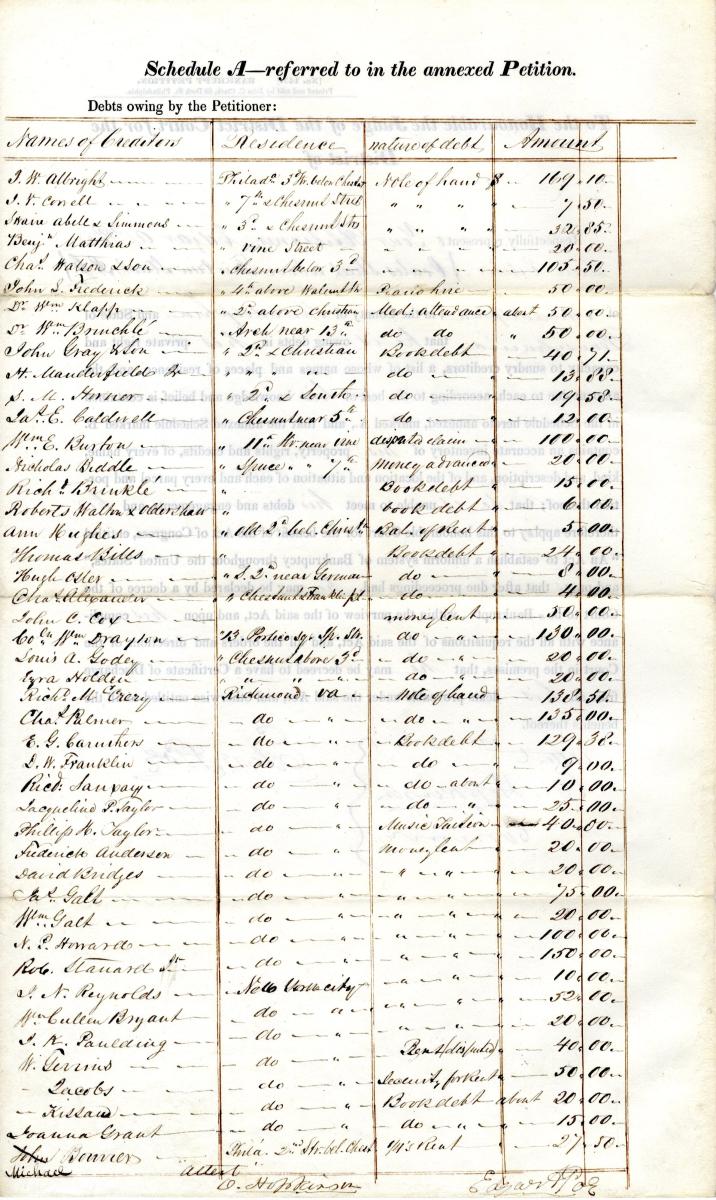 Schedule A—referred to in the annexed Petition.
Debts owing by the Petitioner:
Names of Creditors Residence nature of debt Amount
J. W. Albright Philada 3d St. below Chesnut Note of hand $ 169.10
J. V. Cowell " 7th & Chesnut Street " " " 7.50
Swain Abell & Simmons " 3d & Chesnut Sts " " " 32.85
Benjn Matthias " vine Street " " 20.00
Chas. Watson & Son " Chesnut below 3d " " 105.50
John S. Frederick " 4th above Walnut St Piano hire 50.00
Dr Wm Klapp " 2d above christian Med: attendance about 50.00
Dr Wm Brinckle " Arch near 13th do do " 50.00
John Gray & Son " 2d & Christian Book debt 40.71
H. Manderfield Jr " " " do 13.88
S. M. Horner " 2d & South do 19.58
Jas. E. Caldwell " Chesnut near 5th do 12.00
Wm E. Burton " 11th St. near vine disputed claim 100.00
Nicholas Biddle " Spruce " 7th Money advanced 20.00
Richd Brinkle " Book debt 15.00
Roberts Walton & " book debt 6.00
Ann Hughes " old 2d bel. Christn Bal. of Rent 5.00
Thomas Bills " Book debt 24.00
Hugh Osler " S. 2d near German do 8.00
Chas. Alexander " Chesnut & Franklin pl do 4.00
John C. Cox money lent 50.00
Wm Drayton 13. Portico Sq. Sp. Str. do " 130.00
Louis A. Godey " Chesnut above 3d do " 20.00
Ezra Holden " " " do " 20.00
Richd McCrery Richmond va Note of hand 138.51
Chas. Palmer do " do " 135.00
E. G. Caruthers do " Book debt 129.38
D. W. Franklin do " do " 9.00
Ricd: Sanxay do " do about 10.00
Jacqueline P. Taylor do " do " 25.00
Phillip K. Taylor do " Music Tuition 40.00
Frederick Anderson do " Money lent 20.00
David Bridges do " " " 20.00
Jas. Galt do " " " 75.00
Wm Galt do " " " 20.00
N. P. Howard do " " " 100.00
Rob. Stanard Jr do " " " 150.00
J. N. Reynolds New York city " " 10.00
Wm Cullen Bryant do " " " 52.00
J. K. Paulding do " " " 20.00
W. do " Rent / disputed 40.00
— Jacobs do " Security for Rent 50.00
— Kissam do " Book debt about 20.00
Joanna Grant do " do " 15.00
John Bouvier Phila. 2nd Str. bel. Chest Rent 27.50
Michael
Attest
E. Hopkinson Edgar A Poe